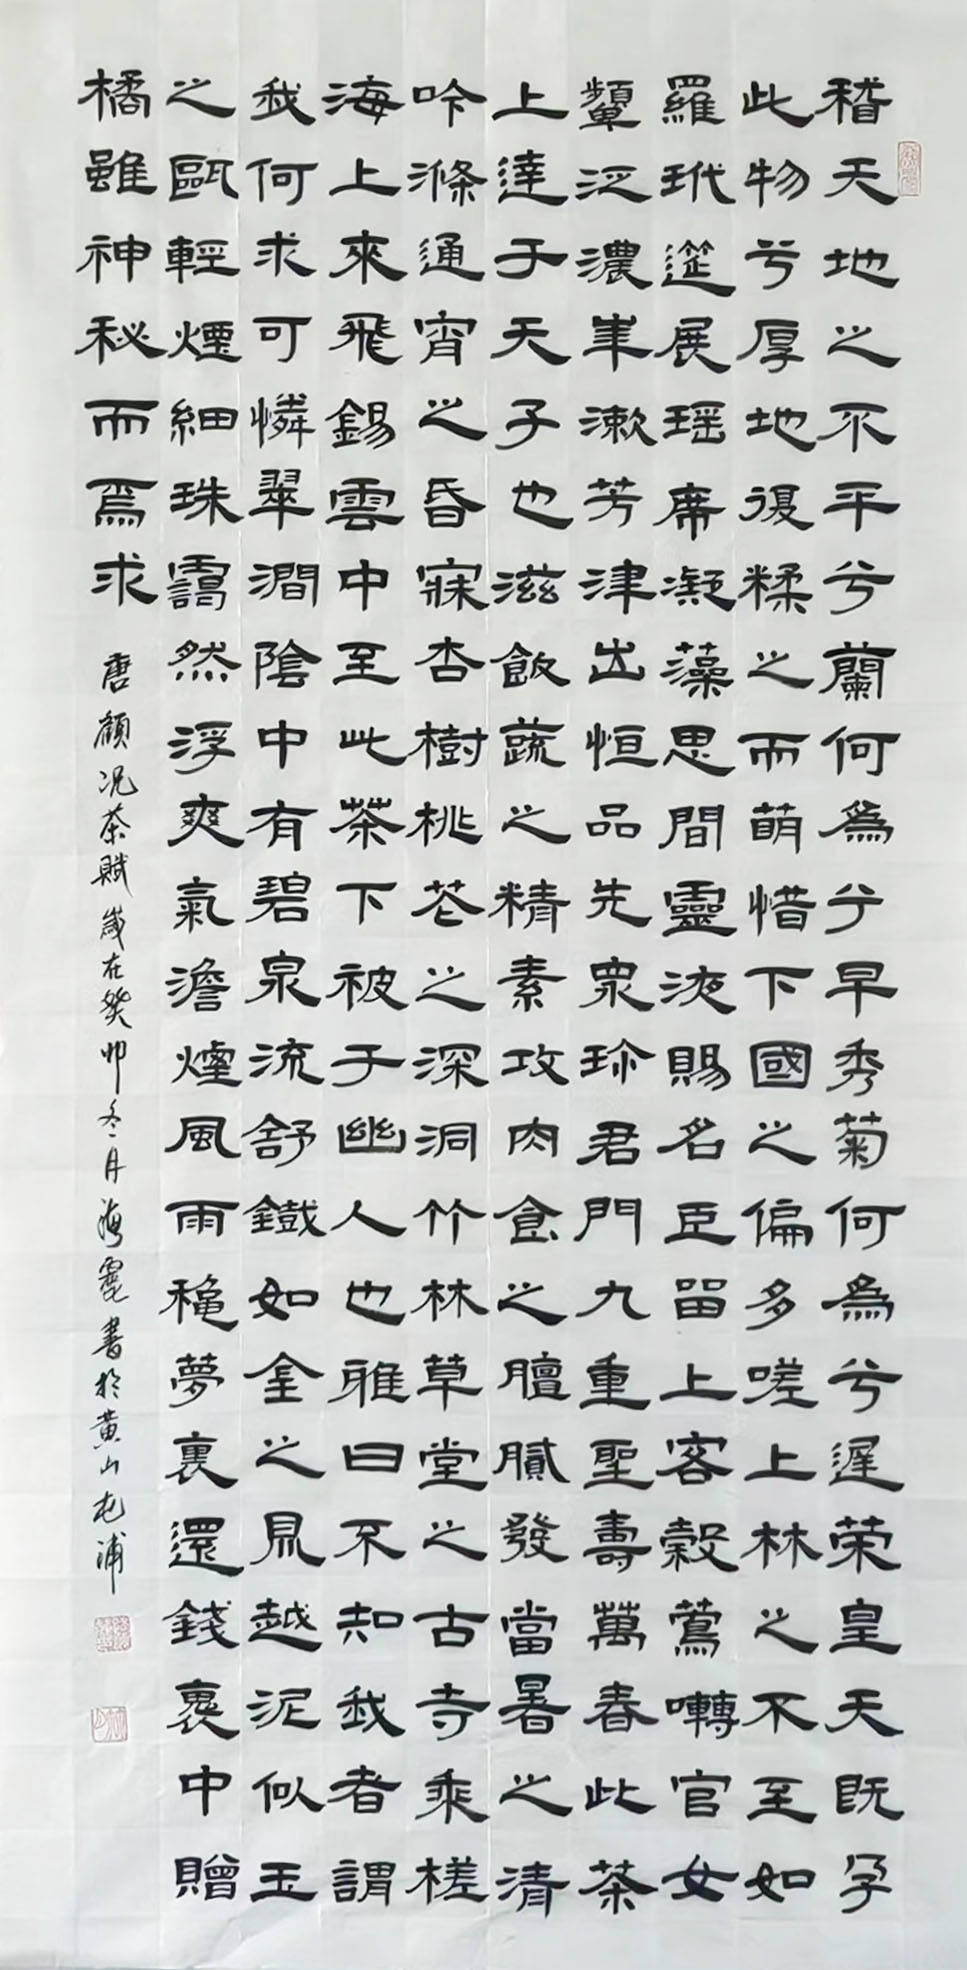 稽天地之不平兮蘭何為兮早秀菊何為兮遲荣皇天既孕
此物兮厚地復糅之而萌惜下國之偏多嗟上林之不至如
羅玳筵展瑶席凝藻思間靈液賜名臣留上客穀鶯囀官女
顰泛濃華漱芳津出恒品先衆珍君門九重聖壽萬春此茶
上達于天子也滋飯蔬之精素攻肉食之膻膩發當暑之清
吟滌通宵之昏寐杏樹桃花之深洞竹林草堂之古寺乘槎
海上來飛錫雲中至此茶下被于幽人也雅曰不知我者謂
我何求可憐翠澗陰中有碧泉流舒鐵如金之鼎越泥似玉
之甌輕煙細珠靄然浮爽氣澹煙風雨穐夢裏還錢褱中贈
橘雖神秘而焉求
唐顧况茶賦歲在癸卯冬月海霞書於黄山屯浦